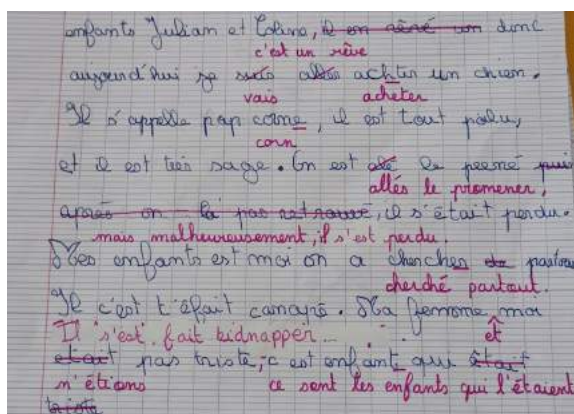 enfants Julian et Coline, il en rêvé un donc
c'est un rêve
aujourd'hui je suis allés achter un chien.
vais acheter
Il s'appelle pap corne, il est tout poilu,
corn
et il est très sage. On est alé le peemé puis
allés le promener,
après on la pas retrouvé, il s'était perdu.
mais malheureusement, il s'est perdu.
Mes enfants est moi on a cherches partour
cherché partout.
Il c'est t'était canapé. Ma femme moi
Il s'est fait kidnapper... et
était pas triste, c est enfant qui était
n'étions ce sont les enfants qui l'étaient
triste